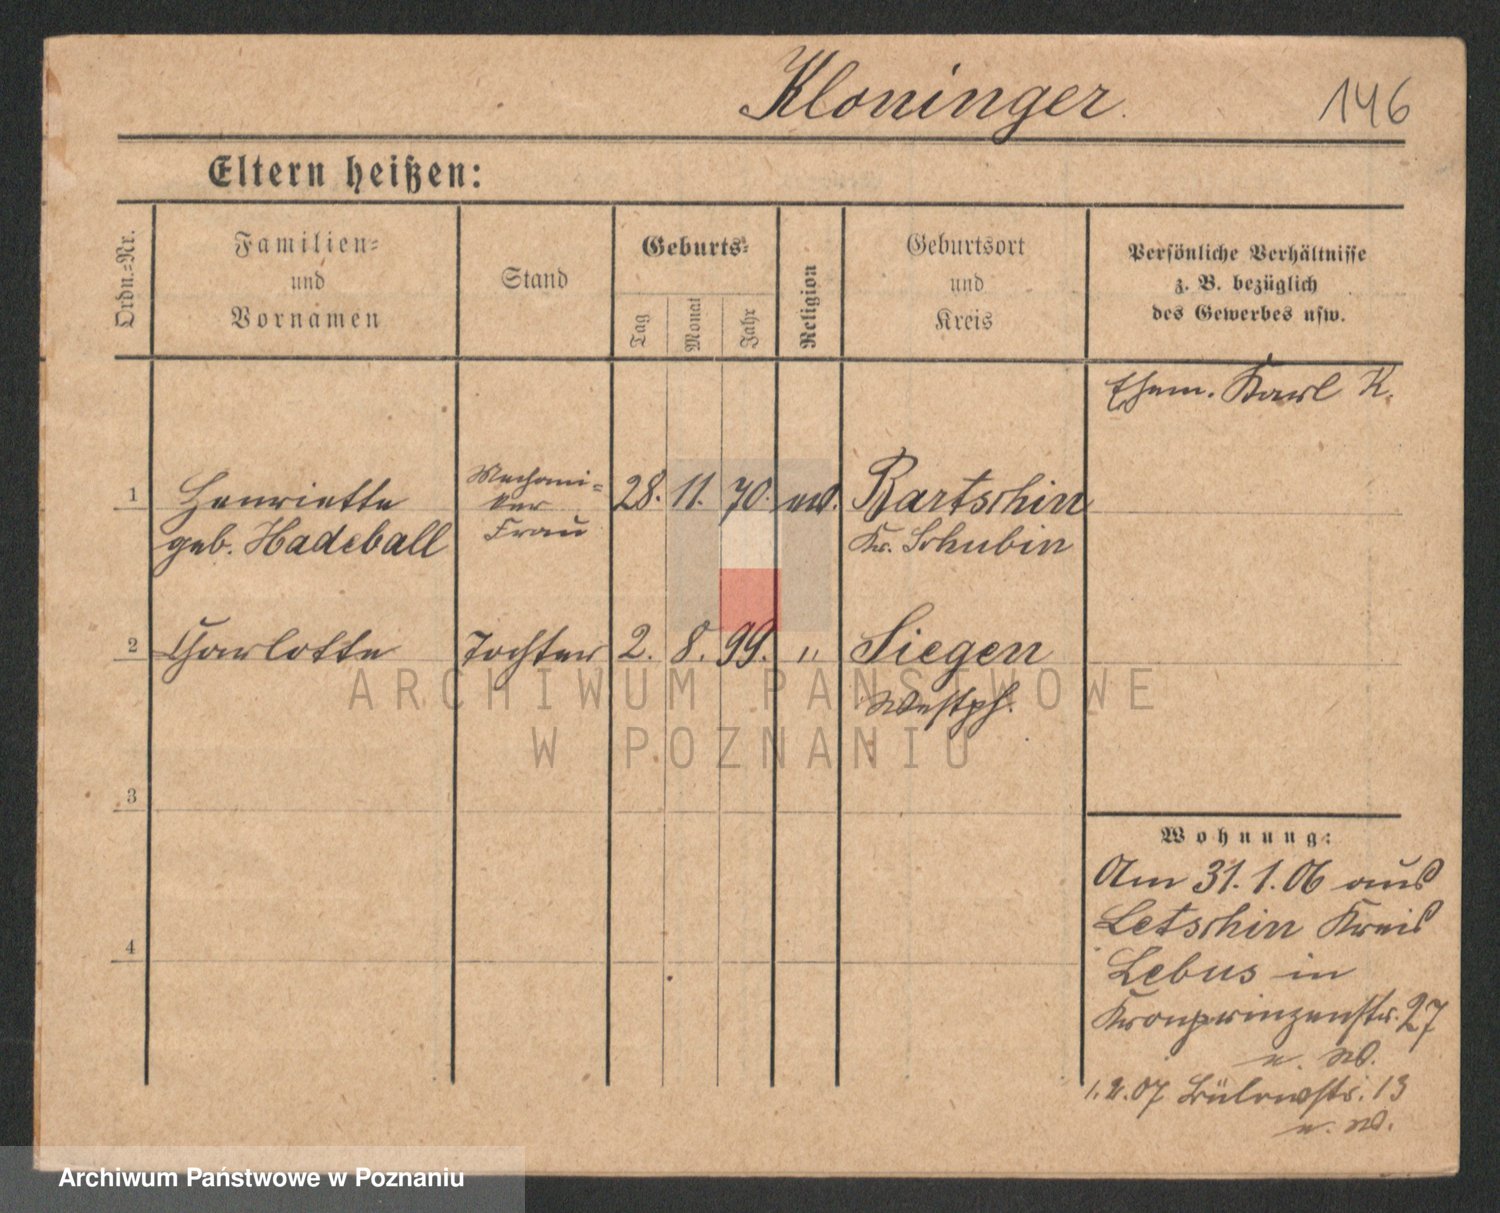 Kloninger. 146
Eltern heißen:
Ordn.=Nr.
Familien=
und
Vornamen
Stand
Geburts=
Tag
Monat
Jahr
Religion
Geburtsort
und
Kreis
Persönliche Verhältnisse
z. B. bezüglich
des Gewerbes usw.
Ehem. Karl K.
1 Henriette Mechani= 28. 11. 70. ev. Bartschin
ker
geb. Hadeball Frau Kr. Schubin
2 Charlotte Tochter 2. 8. 99. " Siegen
Westph.
ARCHIWUM PAŃSTWOWE
W POZNANIU
3
Wohnung:
Am 31. 1. 06 aus
Letschin Kreis
4
Lebus in
Kronprinzenstr. 27
1. 2. 07 Bülowstr. 13
Archiwum Państwowe w Poznaniu